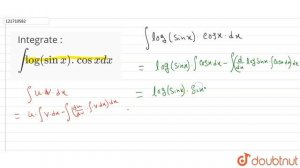 121710582
Integrate :
∫log(sin x). cos xdx
∫ log(sinx) cosx. dx
= log(sinx) ∫ cosx dx - ∫(d/dx log sinx ∫cosx dx) dx
∫ u v. dx
= u. ∫ v dx - ∫(du/dx . ∫ v dx) dx
= log(sinx). sinx